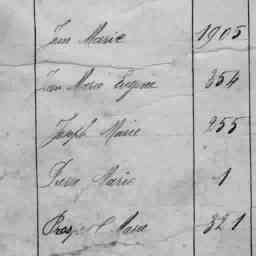 Jean Marie 1905
Jean Marie Eugène 354
Joseph Marie 255
Pierre Marie 1
Prosper Marie 321